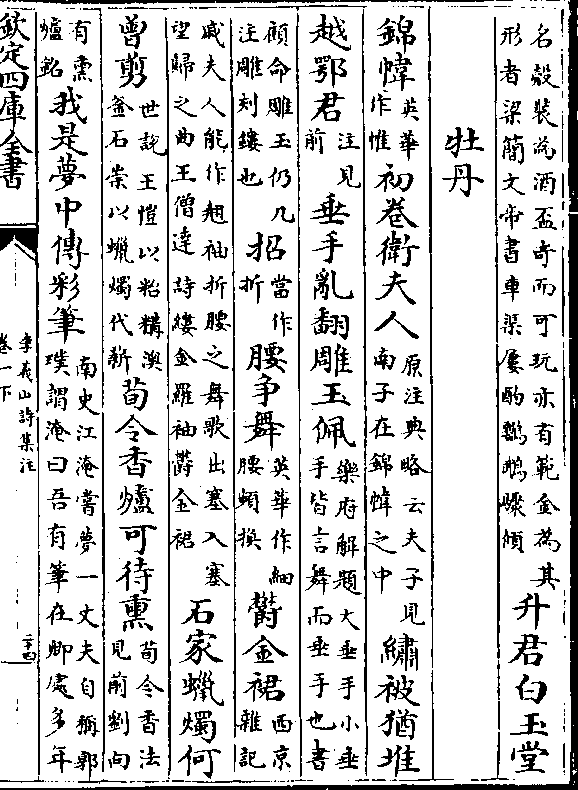 名殼裝為酒盃奇而可玩亦有範金為其形者梁簡文帝書車渠屢酌鸚鵡驟傾升君白玉堂
牡丹
錦幃英華作惟初卷衛夫人原注典略云夫子見南子在錦幃之中繡被猶堆
越鄂君注見前垂手亂翻雕玉佩樂府解題大垂手小垂手皆言舞而垂手也書
顧命雕玉仍几注雕刻鏤也招當作折腰爭舞英華作細腰頻換鬱金裙西京雜記
戚夫人能作翹袖折腰之舞歌出塞入塞望歸之曲王僧達詩縷金羅袖鬱金裙石家蠟燭何
曾剪世說王愷以粘糒澳釜石崇以蠟燭代薪荀令香爐可待熏荀令香法見前劉向
有熏爐銘我是夢中傳彩筆南史江淹嘗夢一丈夫自稱郭璞謂淹曰吾有筆在卿處多年
欽定四庫全書
李義山詩集注
卷一下
二十四